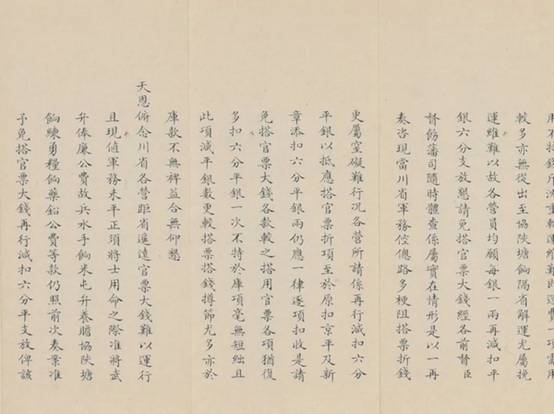 較多亦無從出至協陝塘餉隔省解運尤屬挽
運維難以故各營員均願每銀一兩再減扣平
銀六分支放懇請免搭官票大錢經各前督臣
督飭藩司隨時體查係屬實在情形是以一再
奏咨現當川省軍務倥傯路多梗阻搭票折錢
更屬窒礙難行況各營所請係再行減扣六分
平銀以抵應搭官票折項至於原扣京平及新
章添扣六分平銀兩仍應一律逐項扣收是請
免搭官票大錢各款較之搭用官票各項猶復
多扣六分平銀一次不特於庫項毫無短絀且
此項減平銀數更較搭票搭錢撙節尤多亦於
庫款不無裨益合無仰懇
天恩俯念川省各營距省遙遠官票大錢難以運行
且現值軍務未平正須將士用命之際准將武
弁俸廉公費故兵水手餉米屯弁養贍協陝塘
餉練勇糧餉藥鉛公費等款仍照前次奏案准
予免搭官票大錢再行減扣六分平支放俾該